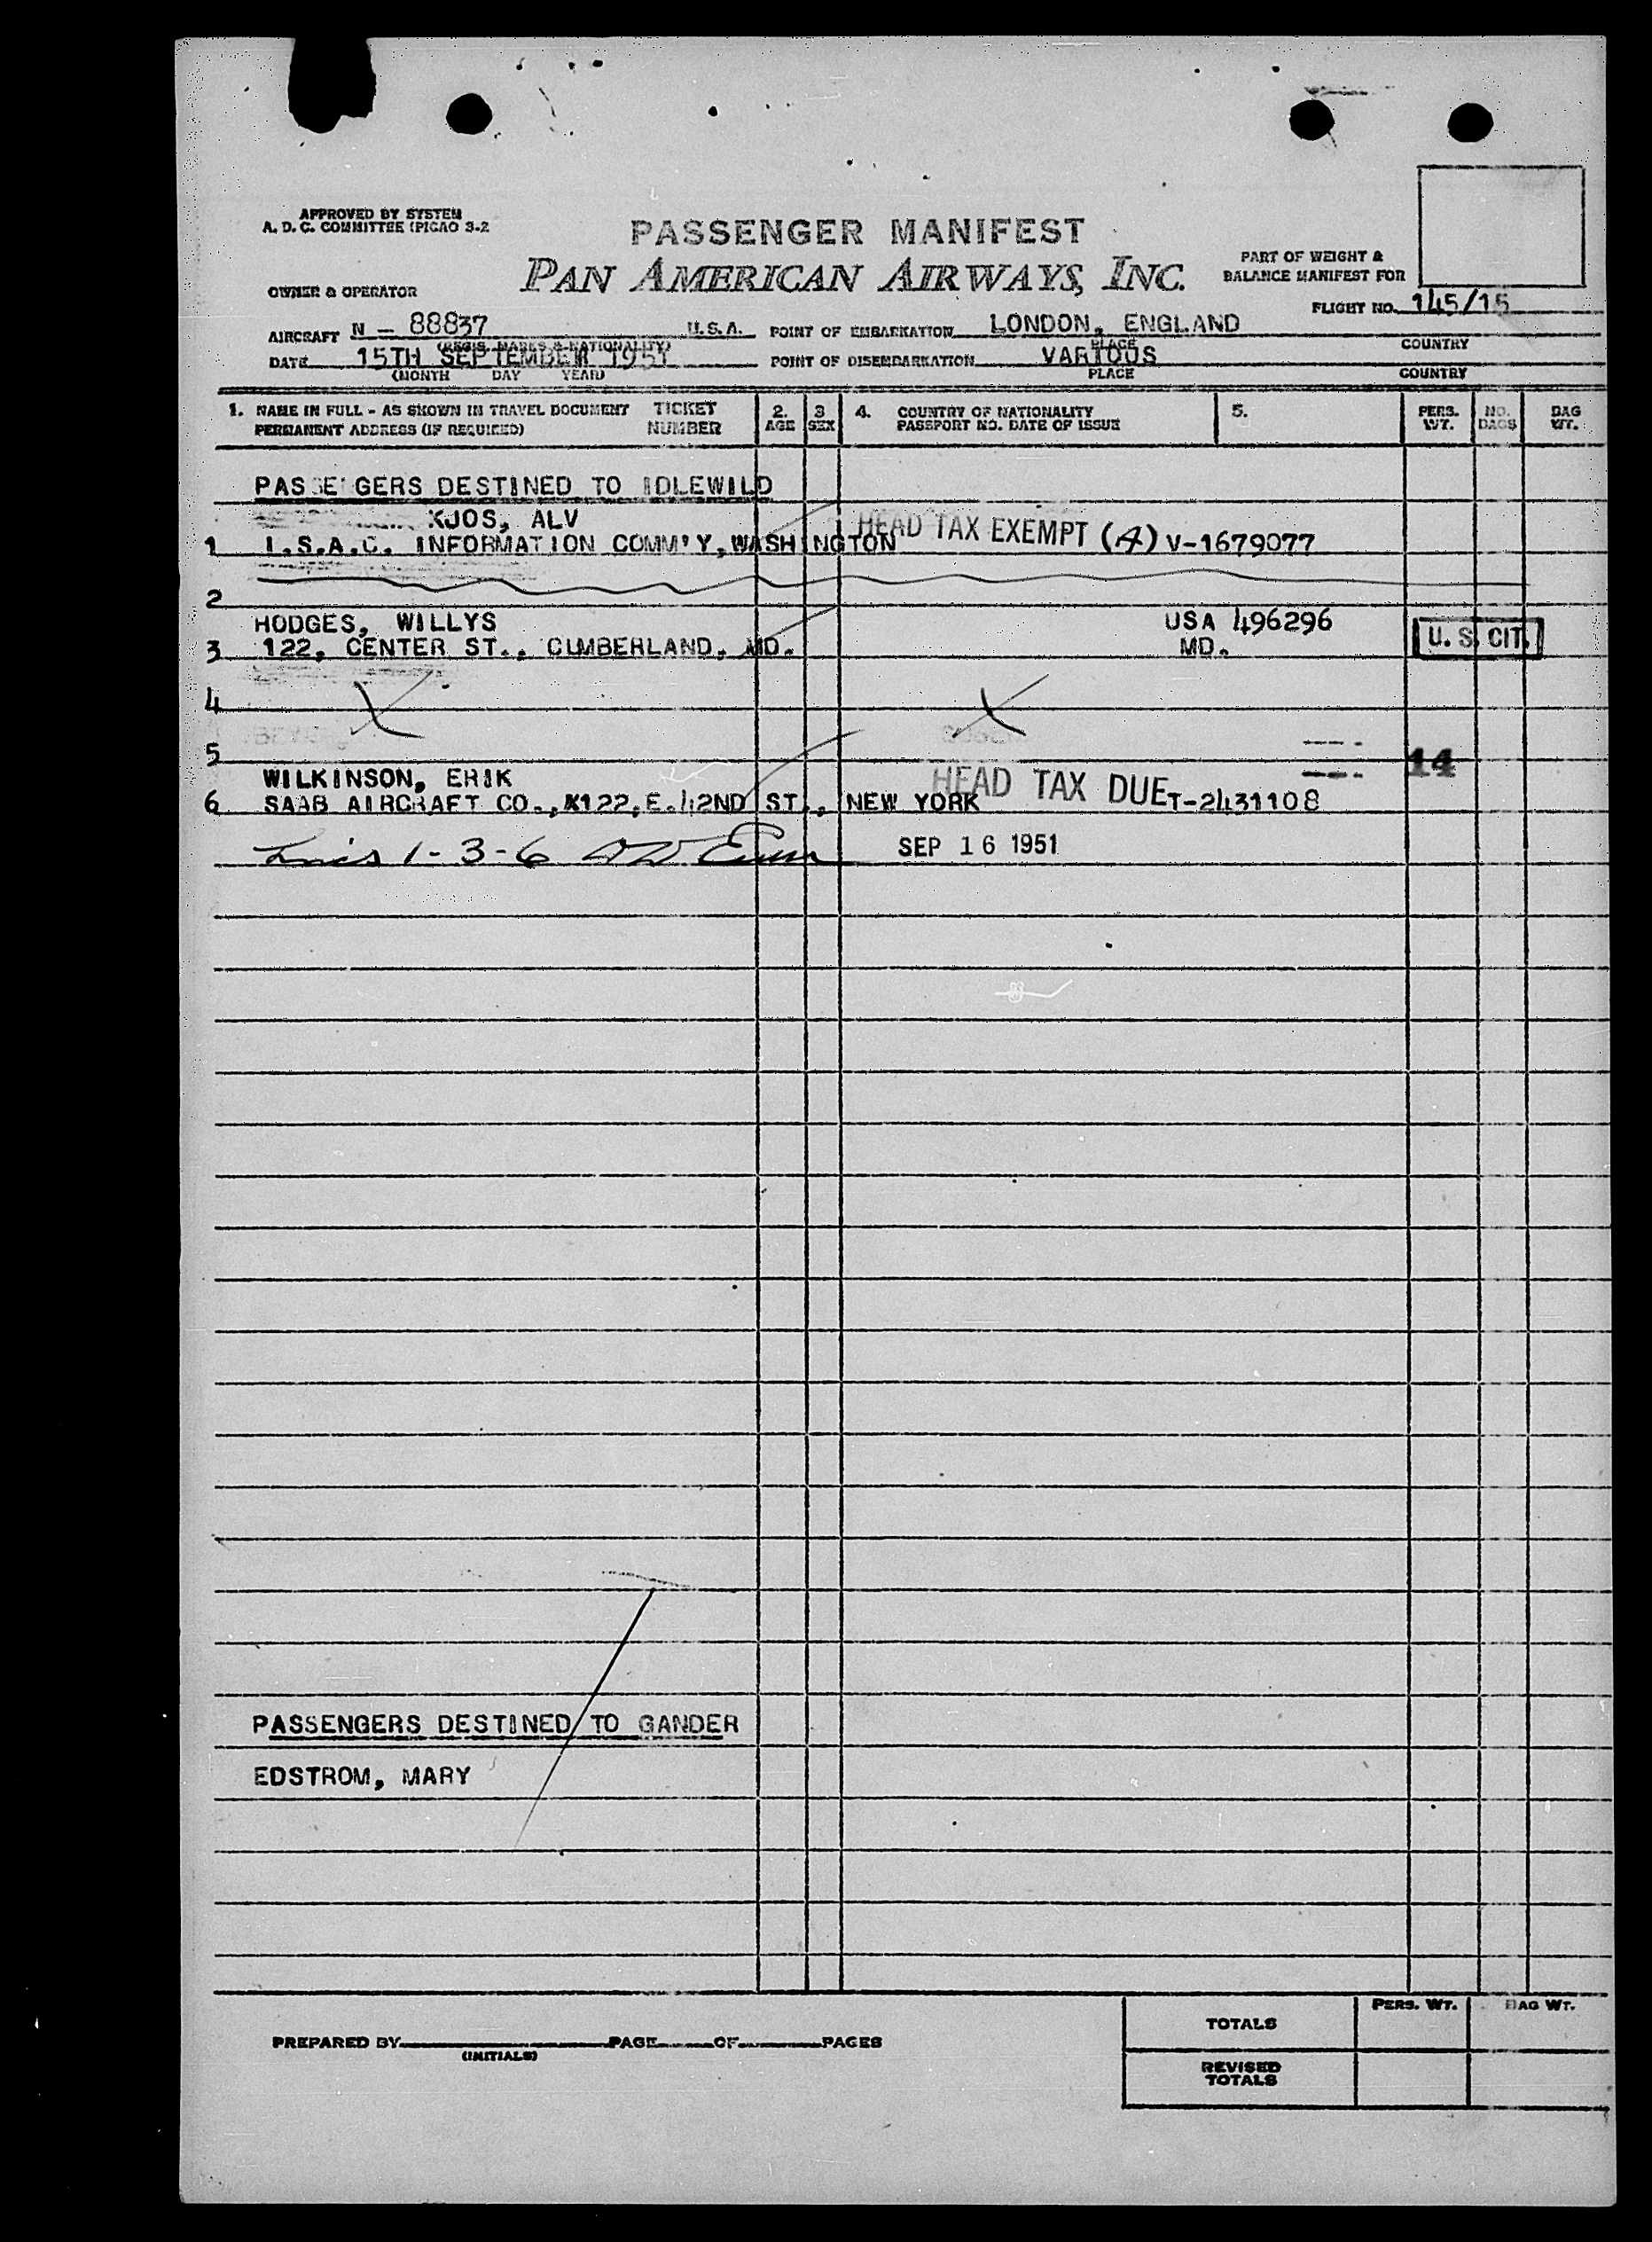 APPROVED BY SYSTEM
A. D. C. COMMITTEE (PICAO 3-2
PASSENGER MANIFEST
PAN AMERICAN AIRWAYS, INC.
PART OF WEIGHT &
BALANCE MANIFEST FOR
OWNER & OPERATOR
FLIGHT NO. 145/15
AIRCRAFT N - 88837 U.S.A. POINT OF EMBARKATION LONDON, ENGLAND
(REGIS. MARKS & NATIONALITY) PLACE COUNTRY
DATE 15TH SEPTEMBER 1951 POINT OF DISEMBARKATION VARIOUS
(MONTH DAY YEAR) PLACE COUNTRY
1. NAME IN FULL - AS SHOWN IN TRAVEL DOCUMENT TICKET 2. 3. 4. COUNTRY OF NATIONALITY 5. PERS. NO. BAG
PERMANENT ADDRESS (IF REQUIRED) NUMBER AGE SEX PASSPORT NO. DATE OF ISSUE WT. BAGS WT.
PASSENGERS DESTINED TO IDLEWILD
KJOS, ALV HEAD TAX EXEMPT (A)
1 I.S.A.C. INFORMATION COMM'Y, WASHINGTON V-1679077
2
HODGES, WILLYS USA 496296
3 122, CENTER ST., CUMBERLAND, MD. MD. U. S. CIT.
4
5
14
WILKINSON, ERIK HEAD TAX DUE
6 SAAB AIRCRAFT CO., X122, E. 42ND ST., NEW YORK T-2431108
1-3-6 SEP 16 1951
PASSENGERS DESTINED TO GANDER
EDSTROM, MARY
PERS. WT. BAG WT.
TOTALS
PREPARED BY PAGE OF PAGES
(INITIALS)
REVISED
TOTALS